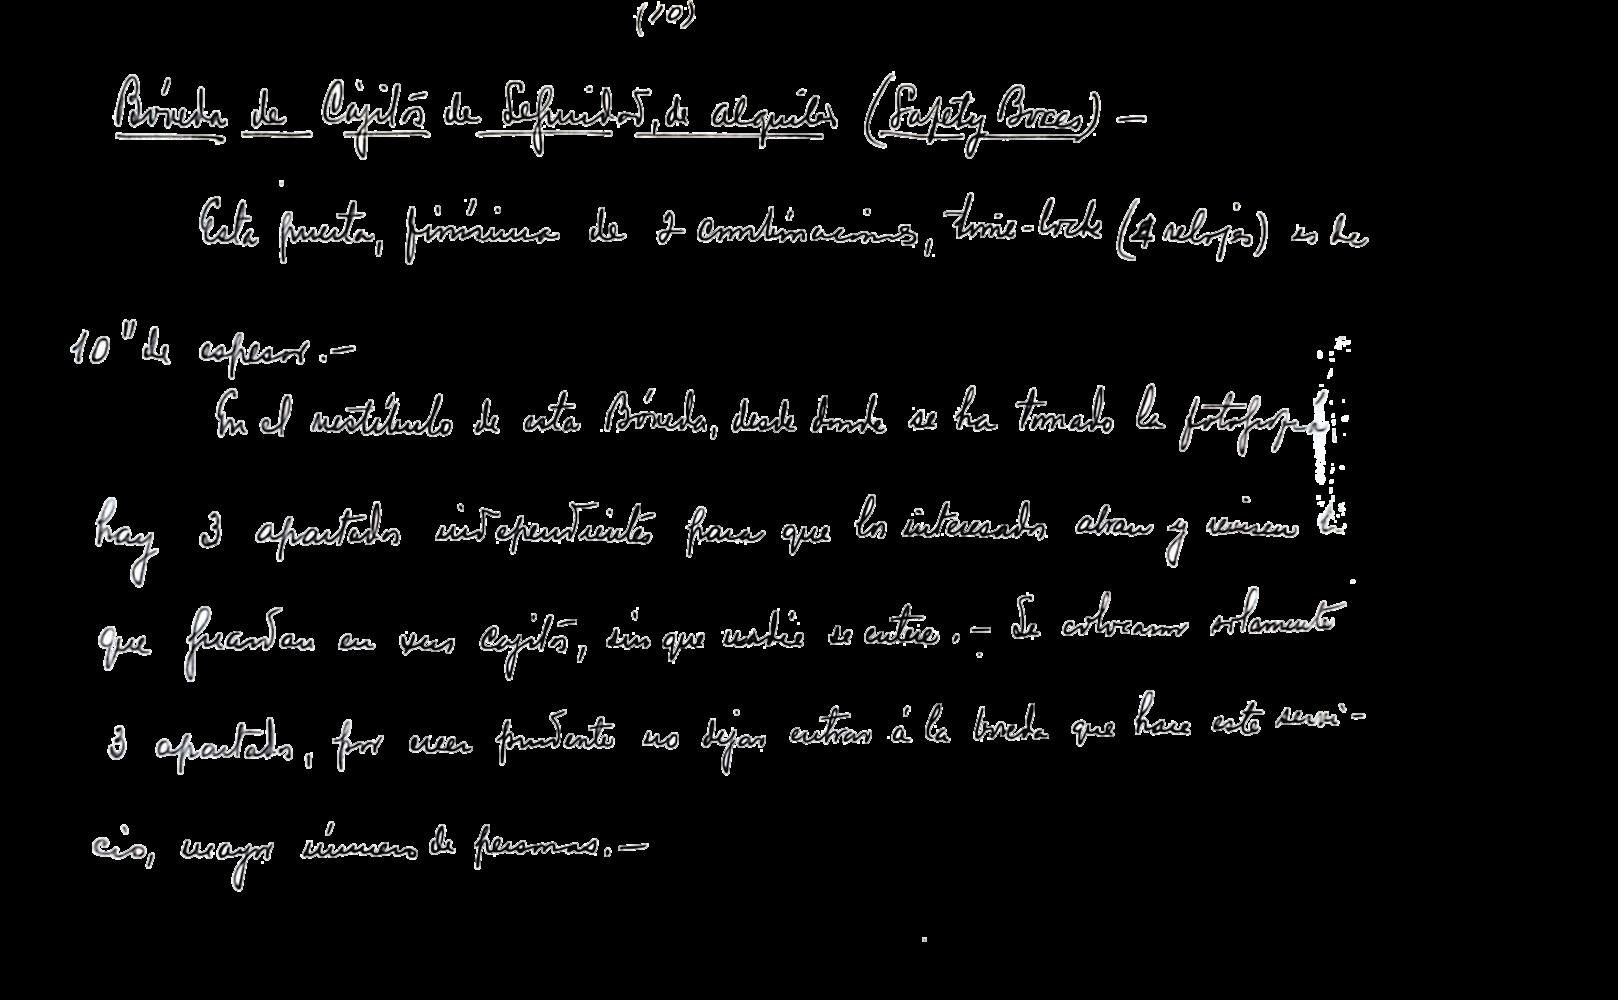 (10)
Bóveda de Cajitas de Seguridad, de alquiler (Safety Boxes) —
Esta puerta, finísima de 2 combinaciones, time-lock (4 relojes) es de
10" de espesor. —
En el vestíbulo de esta Bóveda, desde donde se ha tomado la fotografía
hay 3 apartados independientes para que los interesados abran y revisen lo
que guardan en sus cajitas, sin que nadie se entere. — Se colocaron solamente
3 apartados, por creer prudente no dejar entrar á la boveda que hace este servi-
cio, mayor número de personas. —